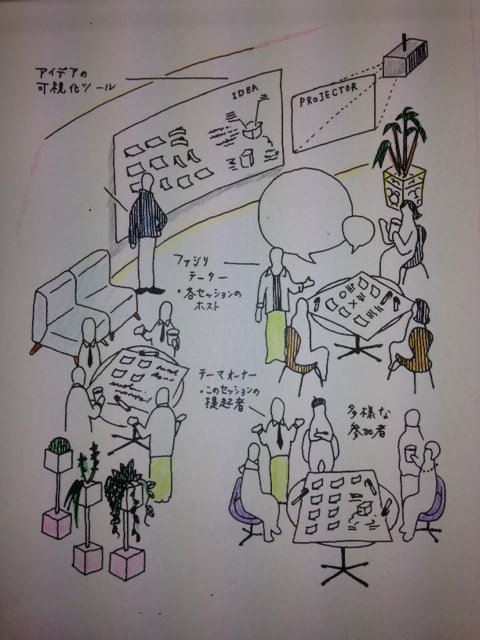 アイデアの
可視化ツール
IDEA
PROJECTOR
ファシリ
テーター
・各セッションの
ホスト
テーマオーナー
・このセッションの
提起者
多様な
参加者